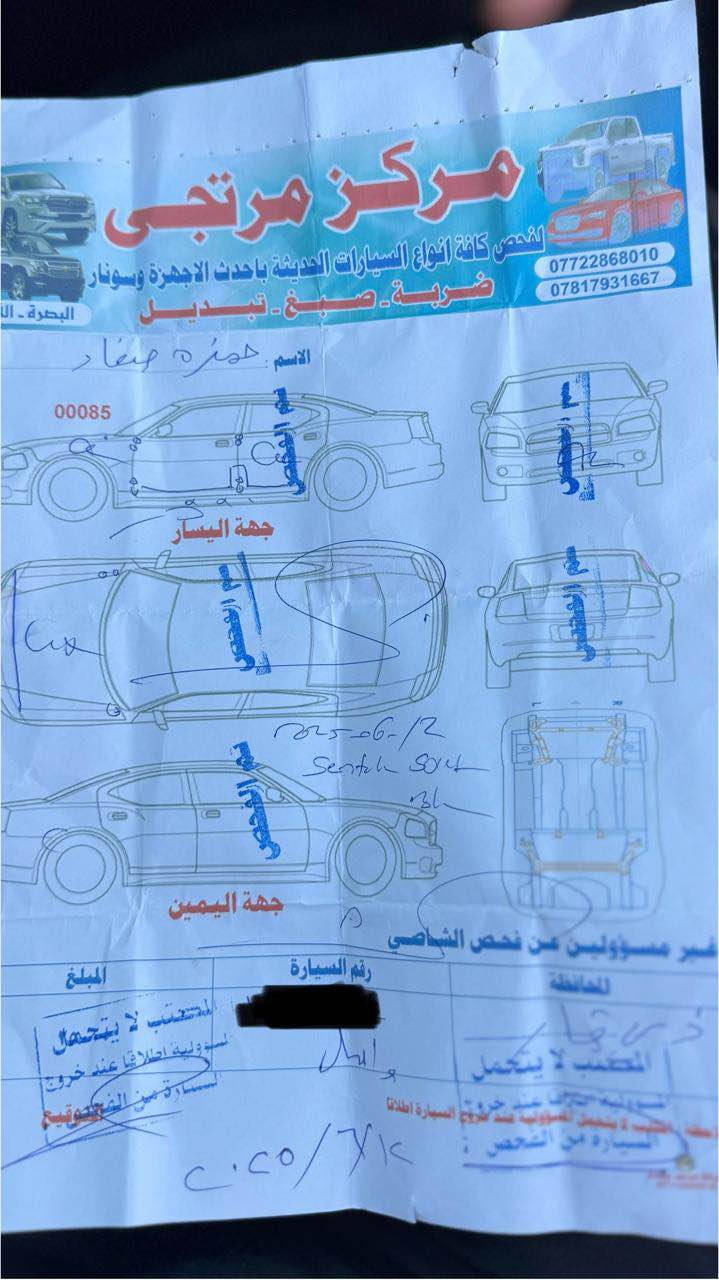 مركز مرتجى
لفحص كافة انواع السيارات الحديثة باحدث الاجهزة وسونار
ضربة - صبغ - تبديل
07722868010
07817931667
البصرة - ال
الاسم: حمزه
00085
تم الفحص
تم الفحص
جهة اليسار
تم الفحص
تم الفحص
2025-06-12
تم الفحص
جهة اليمين
غير مسؤولين عن فحص الشاصي
المحافظة
رقم السيارة
المبلغ
ذي قار
المكتب لا يتحمل
المسؤولية اطلاقا عند خروج
السيارة من الفحص
المكتب لا يتحمل
المسؤولية اطلاقا عند خروج
السيارة من الفحص
المكتب لا يتحمل المسؤولية عند خروج السيارة اطلاقا
التوقيع
٢٠٢٥/٦/١٢